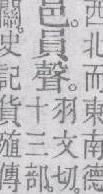 西北而東南德
邑。員聲。羽文切。十三部。
關。史記貨殖傳